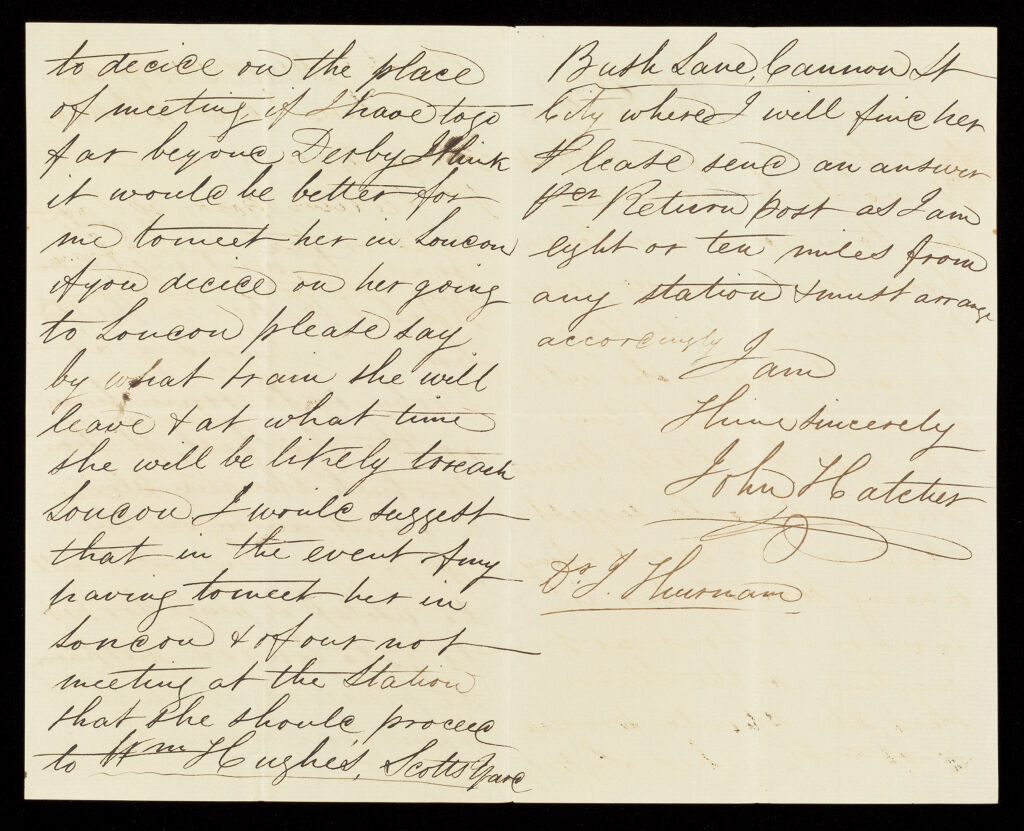 to decide on the place
of meeting, if I have to go
far beyond Derby I think
it would be better for
me to meet her in London
if you decide on her going
to London please say
by what train she will
leave & at what time
she will be likely to reach
London, I would suggest
that in the event of my
having to meet her in
London & of our not
meeting at the Station
that she should proceed
to Wm Hughes, Scotts Yard
Bush Lane, Cannon St
City where I will find her
Please send an answer
per Return post as I am
eight or ten miles from
any station & must arrange
accordingly
I am
Thine sincerely
John Hatcher
Dr J. Thurnam